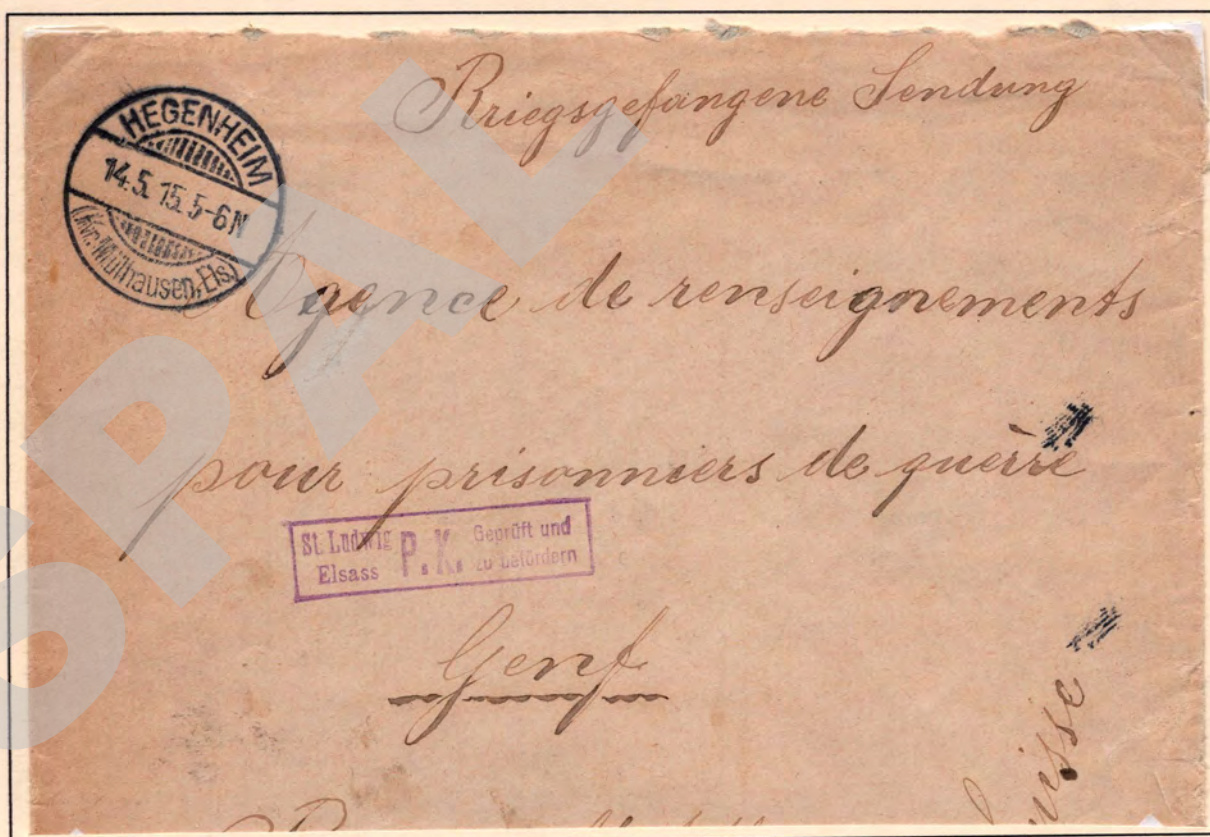 Kriegsgefangene Sendung
HEGENHEIM
14.5.15.5-6N
(Kr. Mülhausen, Els.)
Agence de renseignements
pour prisonniers de guèrre
St. Ludwig P.K. Geprüft und
Elsass zu befördern
Genf
Suisse
SPAL